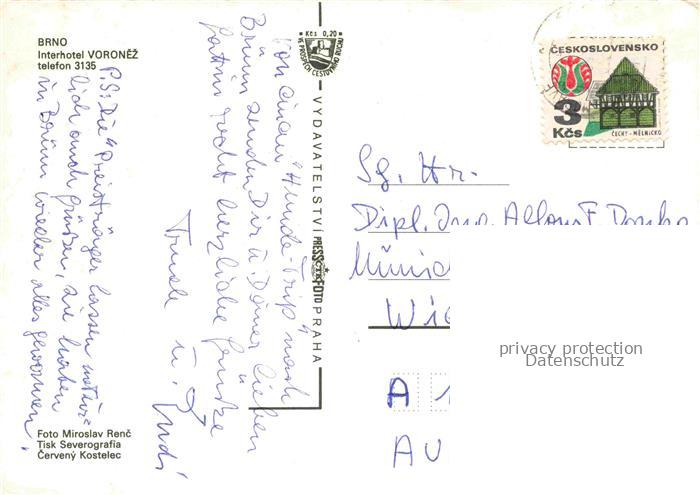 BRNO
Interhotel VORONĚŽ
telefon 3135
Kčs 0,20
VE PROSPĚCH CESTOVNÍHO RUCHU
ČESKOSLOVENSKO
3
Kčs
ČECHY - MĚLNICKO
VYDAVATELSTVÍ PRESSFOTO PRAHA
Von einem "Hunde-Trip" nach
Brünn senden Dir u. Deiner lieben
Gattin recht herzliche Grüße
Trude u. Rudi
P.S: Die "Preisträger lassen natür-
lich auch grüßen, sie haben
in Brünn wieder alles gewonnen!
Sg. Hr.
Dipl. Ing.
Wi
A 1
AU
privacy protection
Datenschutz
Foto Miroslav Renč
Tisk Severografia
Červený Kostelec